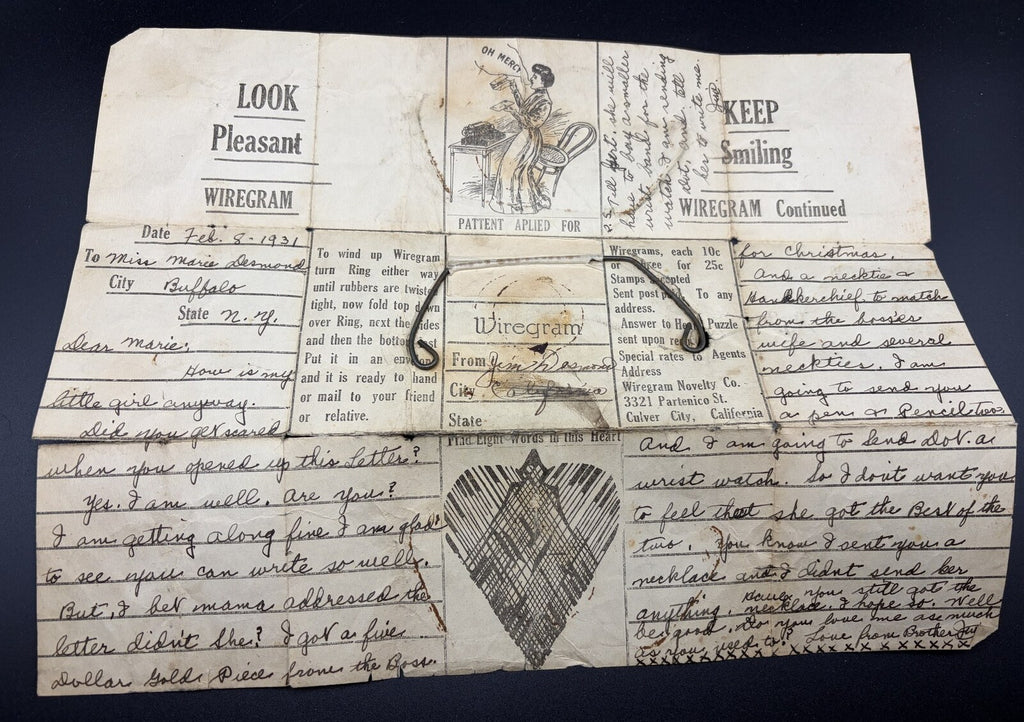 LOOK
Pleasant
WIREGRAM
OH MERCY
PATTENT APLIED FOR
P.S. tell Dot. she will
have to buy a smaller
wrist band for the
watch I am sending
Dot. and tell
her to write me.
Jim
KEEP
Smiling
WIREGRAM Continued
Date Feb. 8-1931
To Miss Marie Desmond
City Buffalo
State N.Y.
Dear Marie;
How is my
little girl anyway.
Did you get scared
when you opened up this letter?
Yes. I am well. Are you?
I am getting along fine I am glad
to see you can write so well.
But, I bet mama addressed the
letter didn't she? I got a five
Dollar Gold Piece from the Boss.
To wind up Wiregram
turn Ring either way
until rubbers are twisted
tight, now fold top down
over Ring, next the sides
and then the bottom last
Put it in an envelope
and it is ready to hand
or mail to your friend
or relative.
Wiregram
From Jim Desmond
City California
State
Wiregrams, each 10c
or three for 25c
Stamps accepted
Sent post paid To any
address.
Answer to Heart Puzzle
sent upon
Special rates to Agents
Address
Wiregram Novelty Co.
3321 Partenico St.
Culver City, California
Find Eight Words in this Heart
for Christmas.
And a necktie &
Handkerchief to match
from the bosses
wife and several
neckties. I am
going to send you
a pen & Pencil too.
And I am going to send Dot. a
wrist watch. So I dont want you
to feel that she got the Best of the
two. You know I sent you a
necklace and I didnt send her
anything. Have you still got the
necklace. I hope so. Well
be good. Do you love me as much
as you used to? Love from Brother Jim
xxxxxxxxxxxxxxxxxxxx